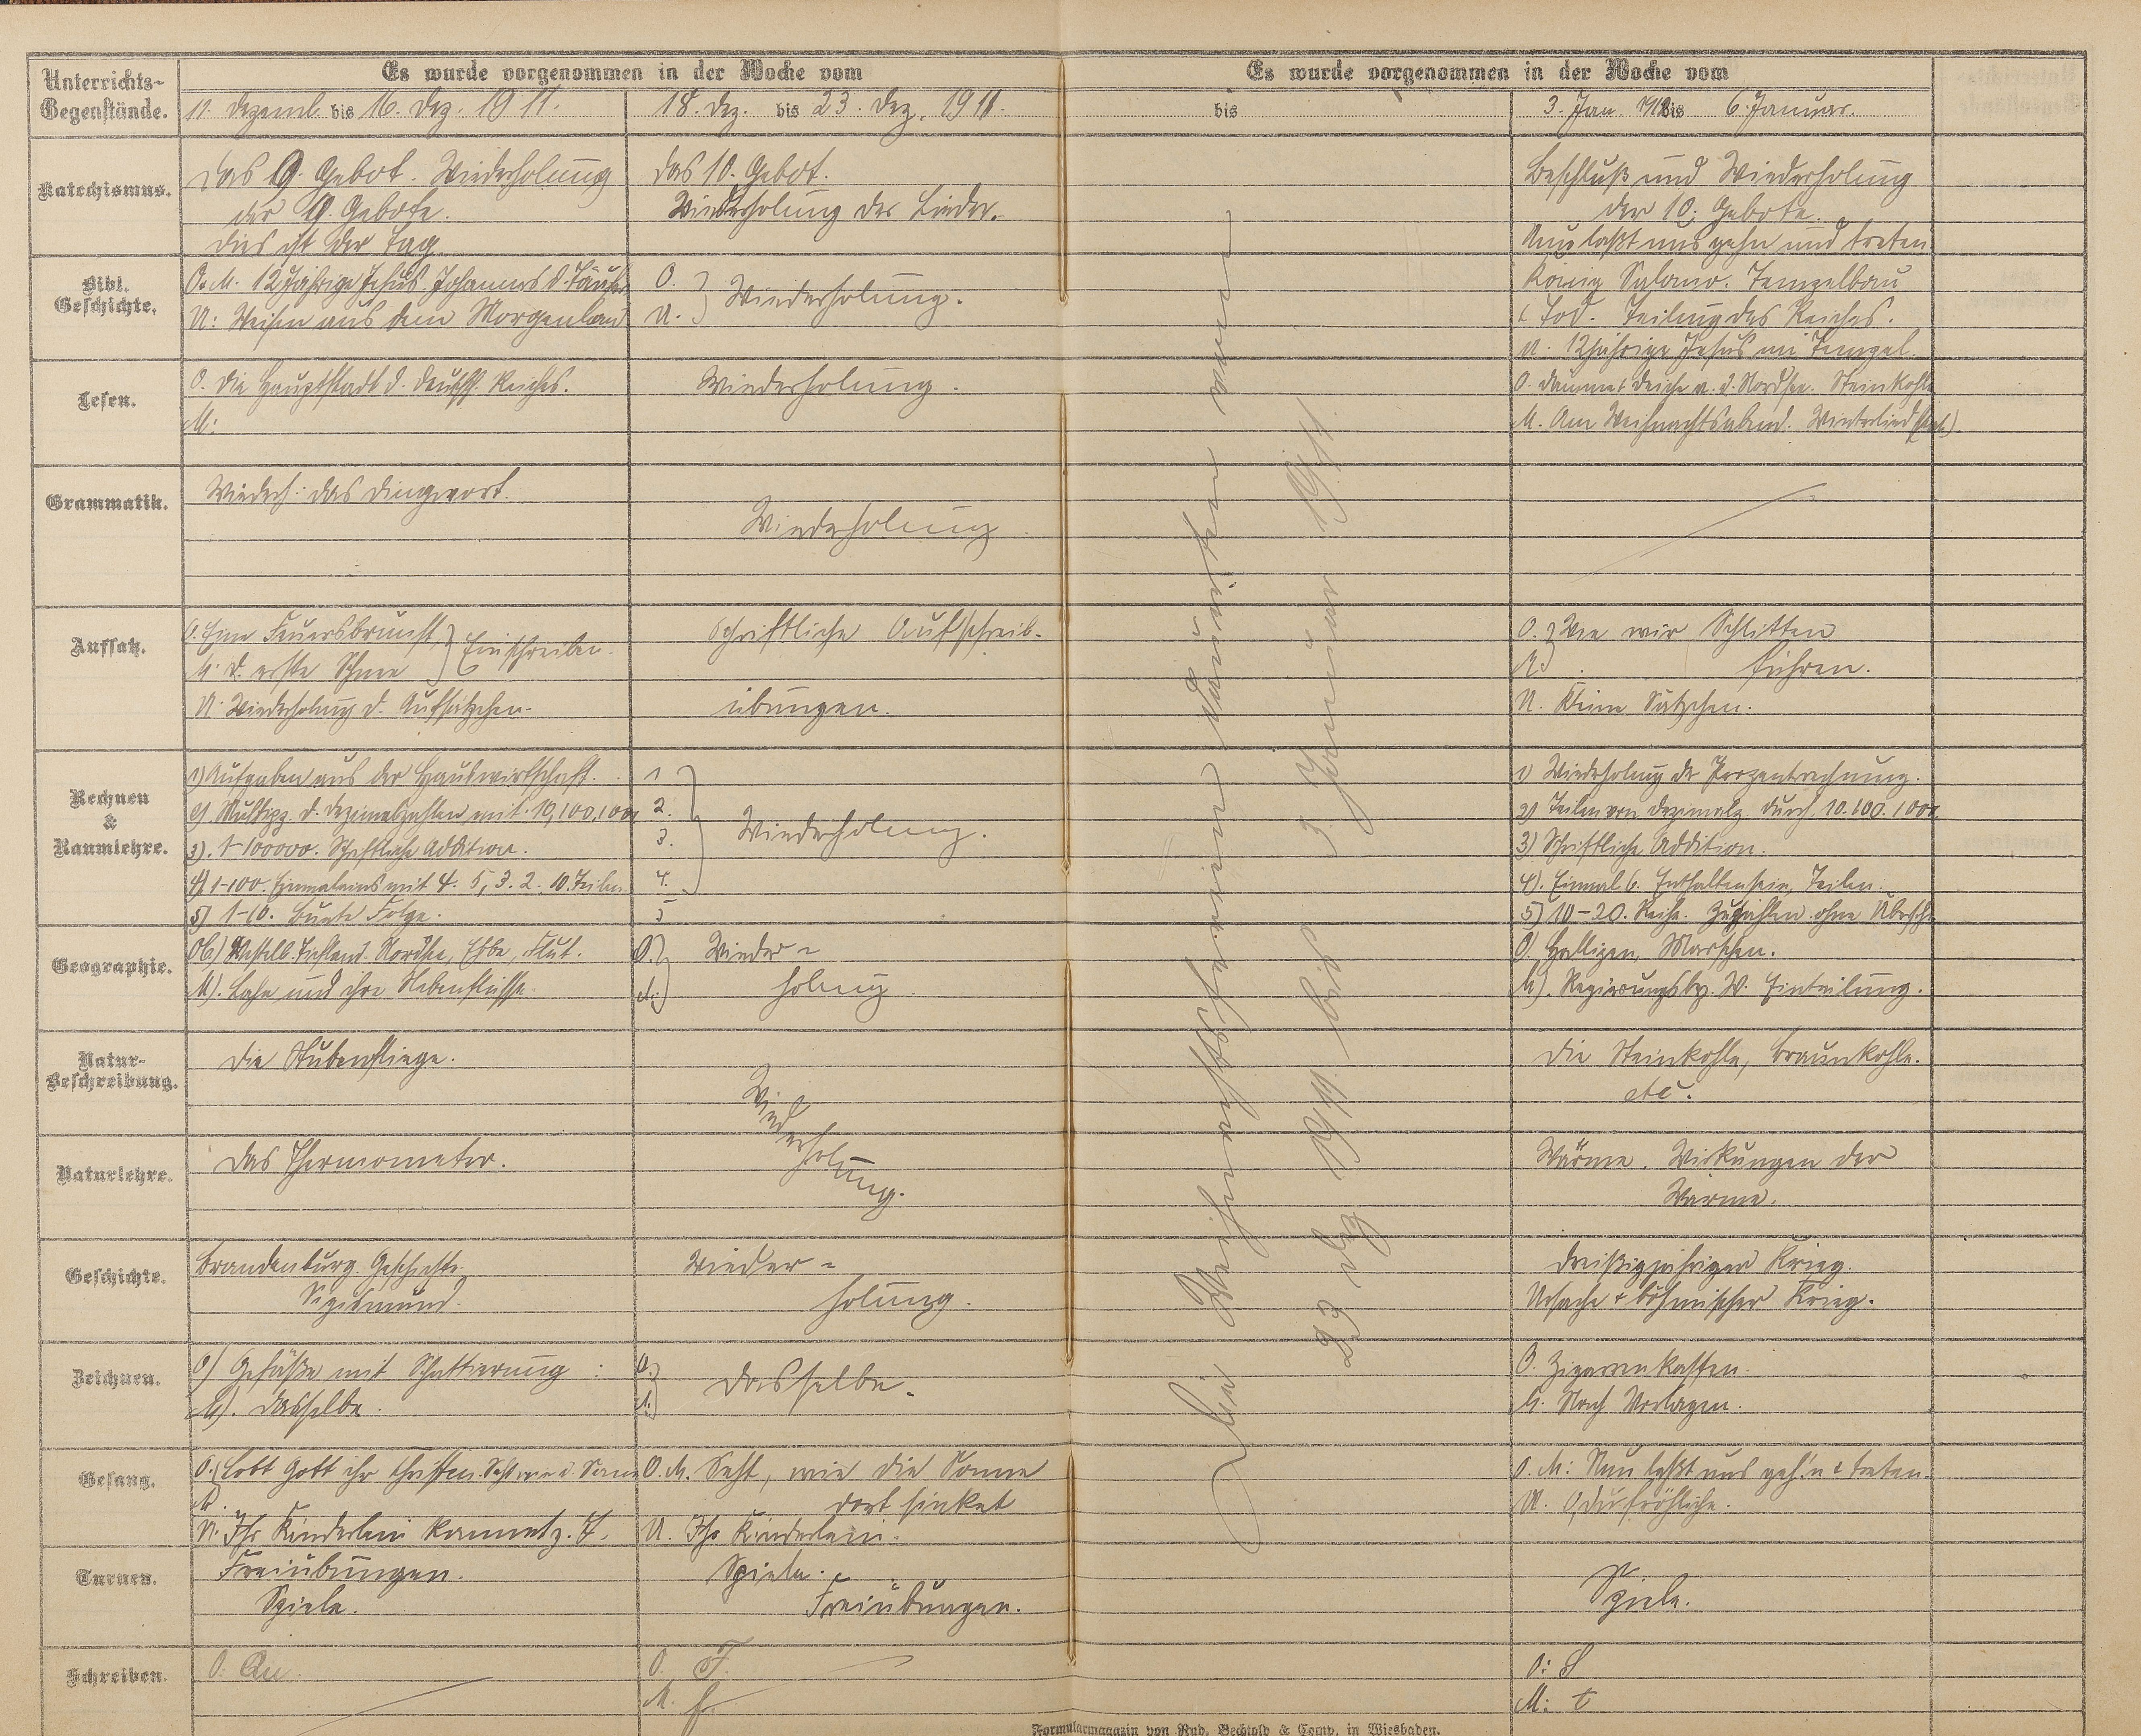 Unterrichts-
Gegenstände.
Es wurde vorgenommen in der Woche vom
Es wurde vorgenommen in der Woche vom
11. Dezemb. bis 16. Dez. 1911.
18. Dez. bis 23. Dez. 1911.
bis
3. Jan. 1912 bis 6. Januar.
Katechismus.
Das 9. Gebot. Wiederholung
der 9. Gebote.
Dies ist der Tag
Das 10. Gebot.
Wiederholung der Lieder.
Beschluß und Wiederholung
der 10. Gebote.
Nun laßt uns gehn und treten
Bibl.
Geschichte.
O. M. 12jährige Jesus. Johannes d. Täufer
U: Weisen aus dem Morgenland
O.
U. Wiederholung.
König Salomo. Tempelbau
& Tod. Teilung des Reiches.
U. 12jährige Jesus im Tempel.
Lesen.
O. Die Hauptstadt d. deutsch. Reiches.
M:
Wiederholung.
O. Dämme & Deiche a. d. Nordsee. Steinkohle
M. Am Weihnachtsabend. Winterlied
Grammatik.
Wiederh: das Dingwort.
Wiederholung.
Aufsatz.
O. Eine Feuersbrunst
M. D. erste Schnee
Einschreiben.
U. Wiederholung d. Aufsätzchen.
Schriftliche Aufschreib-
übungen.
O. Wie wir Schlitten
M. fuhren.
U. Kleine Sätzchen.
Rechnen
&
Raumlehre.
1) Aufgaben aus der Hauswirtschaft.
2). Multipz. d. Dezimalzahlen mit 10, 100, 1000
3). 1-100000. Schriftliche Addition.
4) 1-100. Einmaleins mit 4. 5, 3. 2. 10. Teilen
5) 1-10. Bunte Folge.
1
2.
3. Wiederholung.
4.
5
1) Wiederholung der Prozentrechnung.
2) Teilen von Dezimalz. durch 10. 100. 1000.
3) Schriftliche Addition.
4). Einmal 6. Enthaltensein, Teilen.
5) 10-20. Reihe. Zuzählen ohne Übersch.
Geographie.
Ob) Westelb. Tiefland. Nordsee, Ebbe, Flut.
M). Lahn und ihre Nebenflüsse.
O. Wieder-
M. holung.
O) Halligen, Marschen.
M). Regierungsbz. W. Einteilung.
Natur-
Beschreibung.
Die Stubenfliege.
Wiederholung.
Die Steinkohle, Braunkohle.
etc.
Naturlehre.
Das Thermometer.
Wärme. Wirkungen der
Wärme.
Geschichte.
Brandenburg. Geschichte.
Sigismund.
Wieder-
holung.
Dreißigjähriger Krieg.
Ursache & böhmischer Krieg.
Zeichnen.
O) Gefäße mit Schattierung:
M). Dasselbe.
O.
M. Dasselbe.
O. Zigarrenkasten.
M. Nach Vorlagen.
Gesang.
O. Lobt Gott ihr Christen. Seht wie d. Sonne
M.
U. Ihr Kinderlein kommet
O. M. Seht, wie die Sonne
dort sinket
U. Ihr Kinderlein.
O. M: Nun laßt uns geh'n & treten.
U. O du fröhliche.
Turnen.
Freiübungen.
Spiele.
Spiele.
Freiübungen.
Spiele.
Schreiben.
O. Au.
O. F.
M. f
O: S
M: t
Die Weihnachtsferien dauerten vom
23. Dez 1911 bis 3. Januar
Formularmagazin von Rud. Bechtold & Comp. in Wiesbaden.